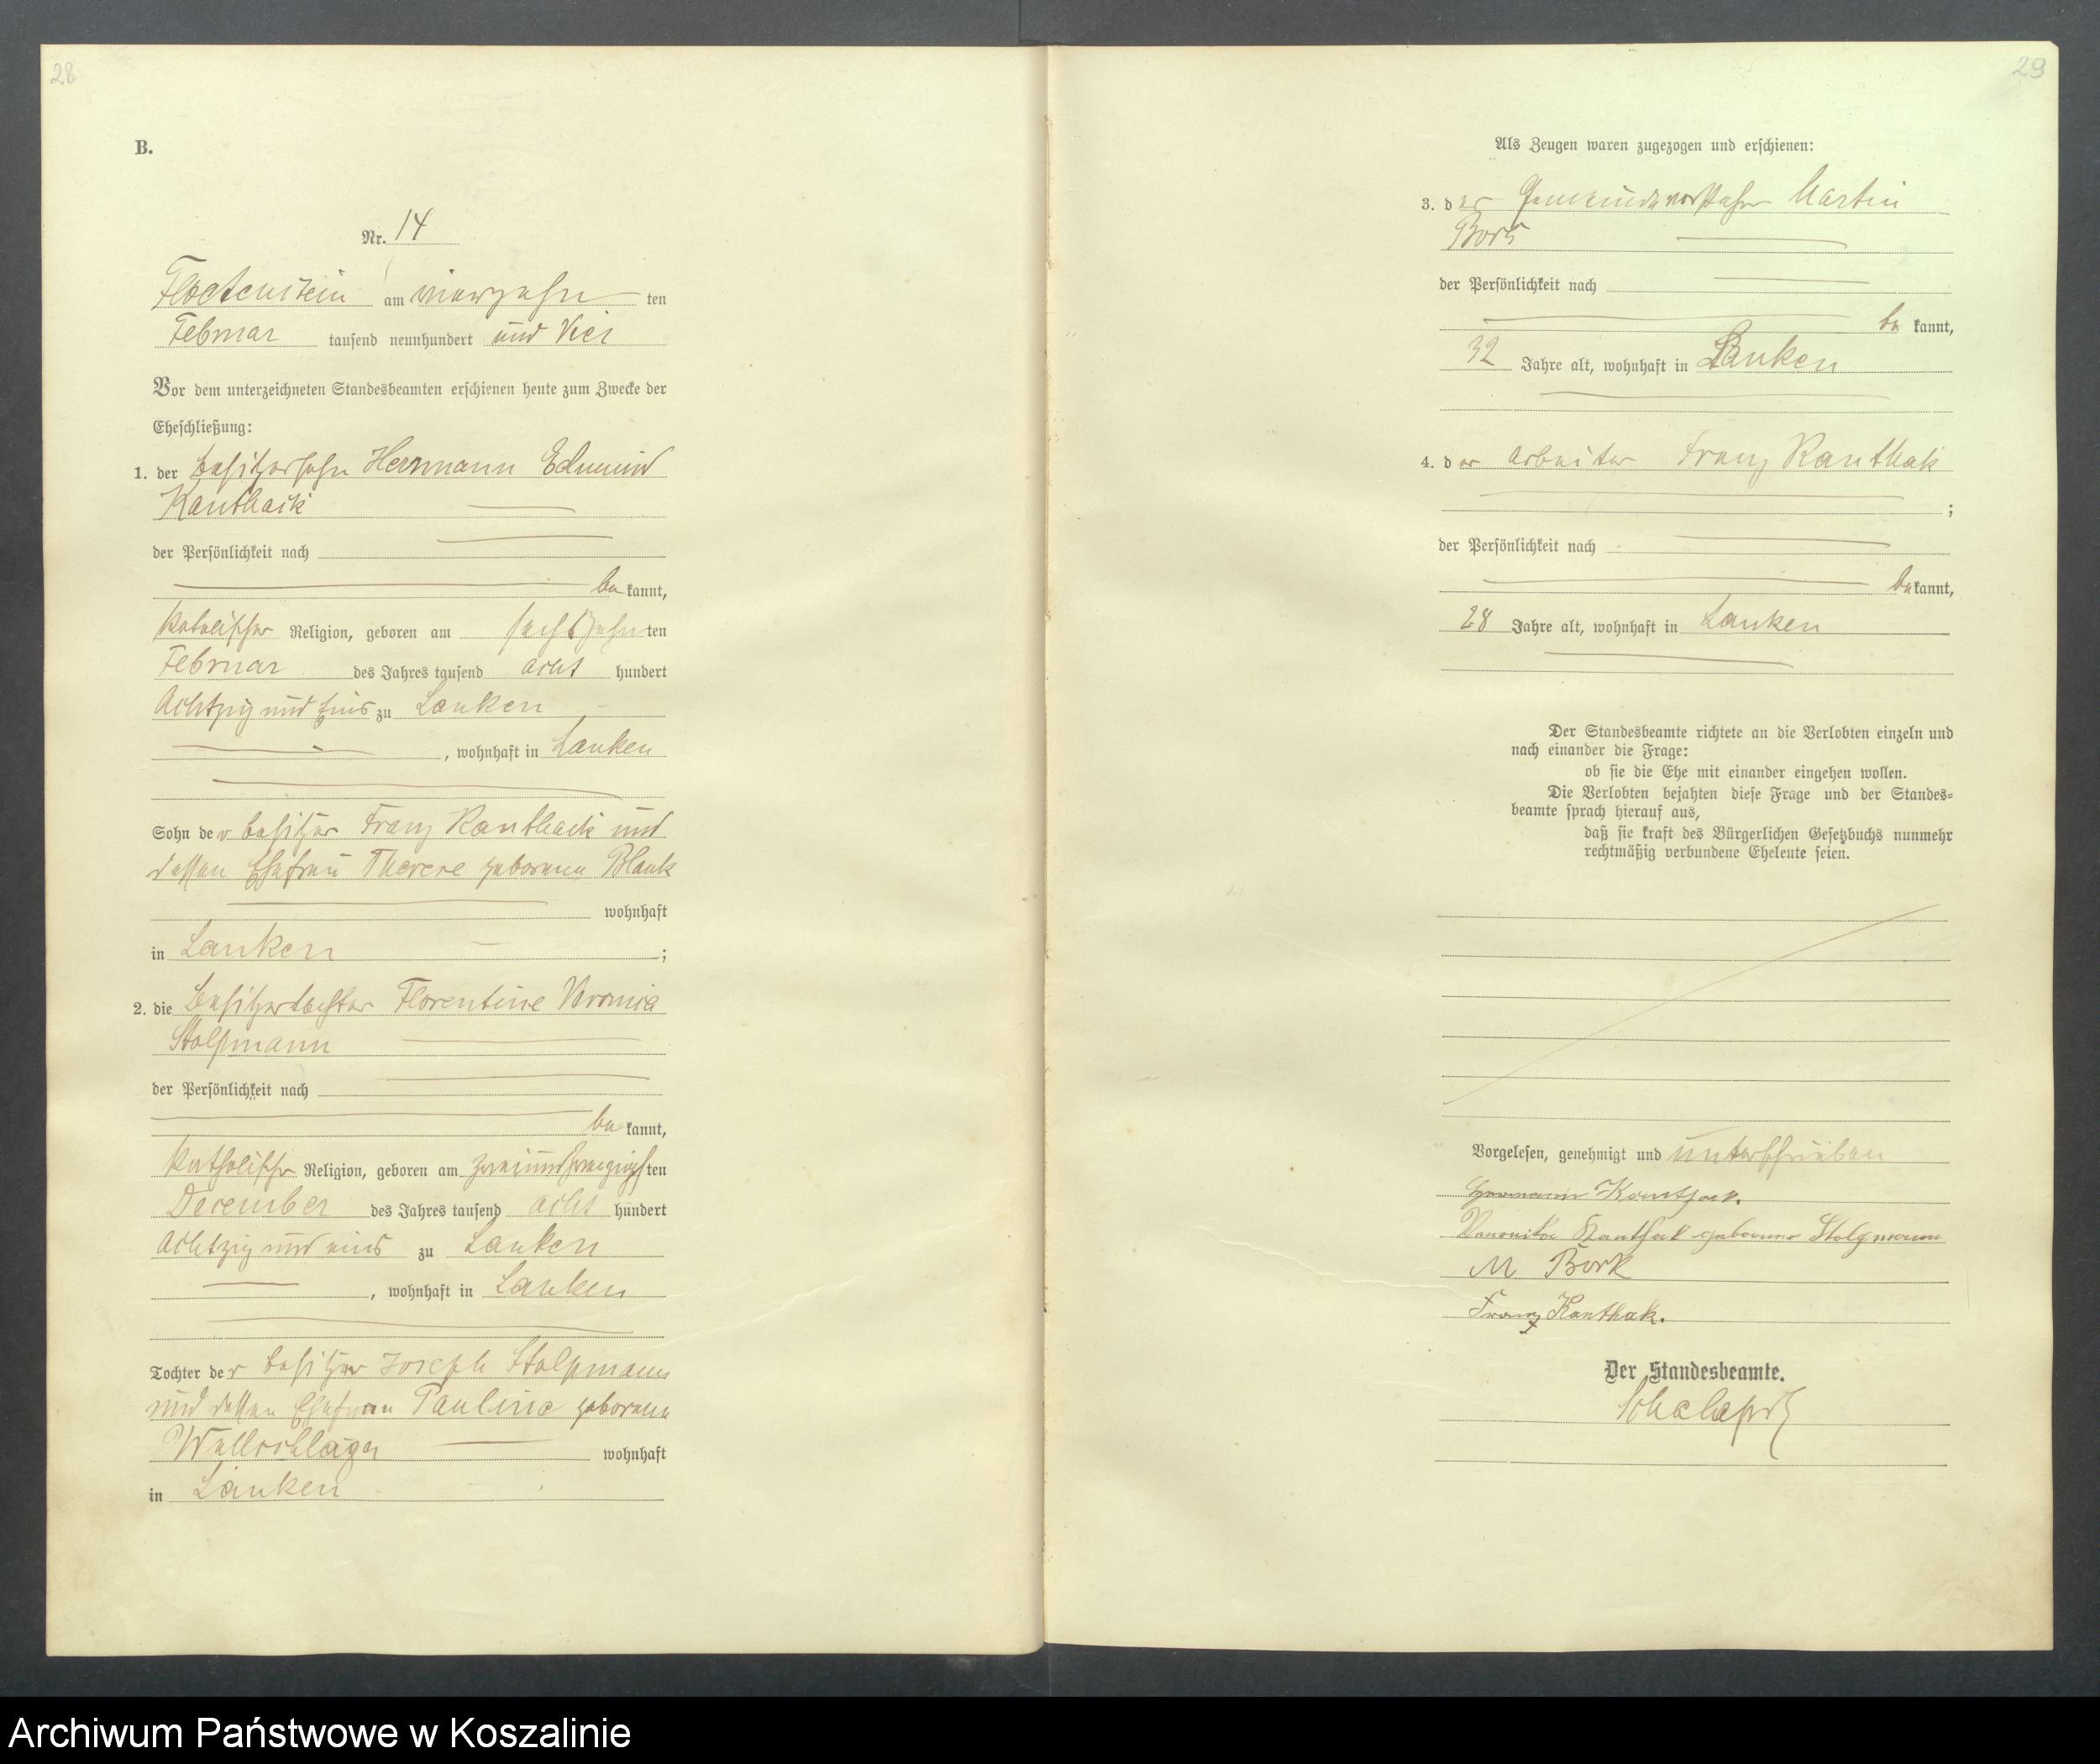 28
B.
Nr. 14
Flötenstein am vierzehn ten
Februar tausend neunhundert und Vier
Vor dem unterzeichneten Standesbeamten erschienen heute zum Zwecke der
Eheschließung:
1. der Besitzersohn Hermann Edmund
Kanthack
der Persönlichkeit nach
be kannt,
katolischer Religion, geboren am sechszehn ten
Februar des Jahres tausend acht hundert
Achtzig und Eins zu Lanken
, wohnhaft in Lanken
Sohn der Besitzer Franz Kanthack und
dessen Ehefrau Therese geborene Blank
wohnhaft
in Lanken ;
2. die Besitzertochter Florentine Veronica
Stolpmann
der Persönlichkeit nach
be kannt,
katholischer Religion, geboren am zweiundzwanzigsten
December des Jahres tausend acht hundert
Achtzig und eins zu Lanken
, wohnhaft in Lanken
Tochter der Besitzer Joseph Stolpmann
und dessen Ehefrau Pauline geborene
Wollschläger wohnhaft
in Lanken
29
Als Zeugen waren zugezogen und erschienen:
3. der Gemeindevorsteher Martin
Bork
der Persönlichkeit nach
be kannt,
32 Jahre alt, wohnhaft in Lanken
4. der Arbeiter Franz Kanthak
;
der Persönlichkeit nach
be kannt,
28 Jahre alt, wohnhaft in Lanken
Der Standesbeamte richtete an die Verlobten einzeln und
nach einander die Frage:
ob sie die Ehe mit einander eingehen wollen.
Die Verlobten bejahten diese Frage und der Standes=
beamte sprach hierauf aus,
daß sie kraft des Bürgerlichen Gesetzbuchs nunmehr
rechtmäßig verbundene Eheleute seien.
Vorgelesen, genehmigt und unterschrieben
Hermann Kanthak.
Veronika Kanthak geborene Stolpmann
M Bork
Franz Kanthak.
Der Standesbeamte.
Archiwum Państwowe w Koszalinie